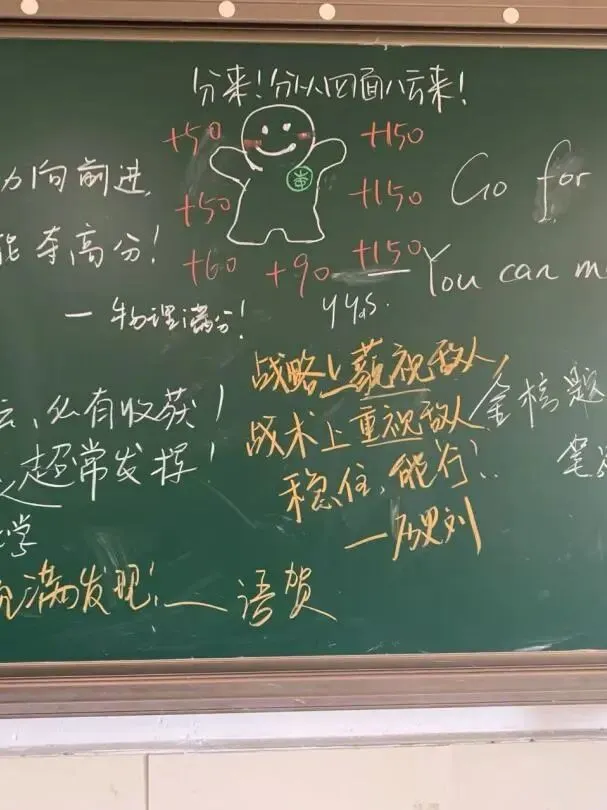 分来！分从四面八云来！
+50 +150
力向前进，
+50 +150
Go for
能夺高分！
+60 +90 +150
You can m
一物理满分！
yyds.
战略上藐视敌人，
云，必有收获！
战术上重视敌人
金榜题
超常发挥！
稳住，能行！
笔
学
—历史刘
充满发肥！—语贺